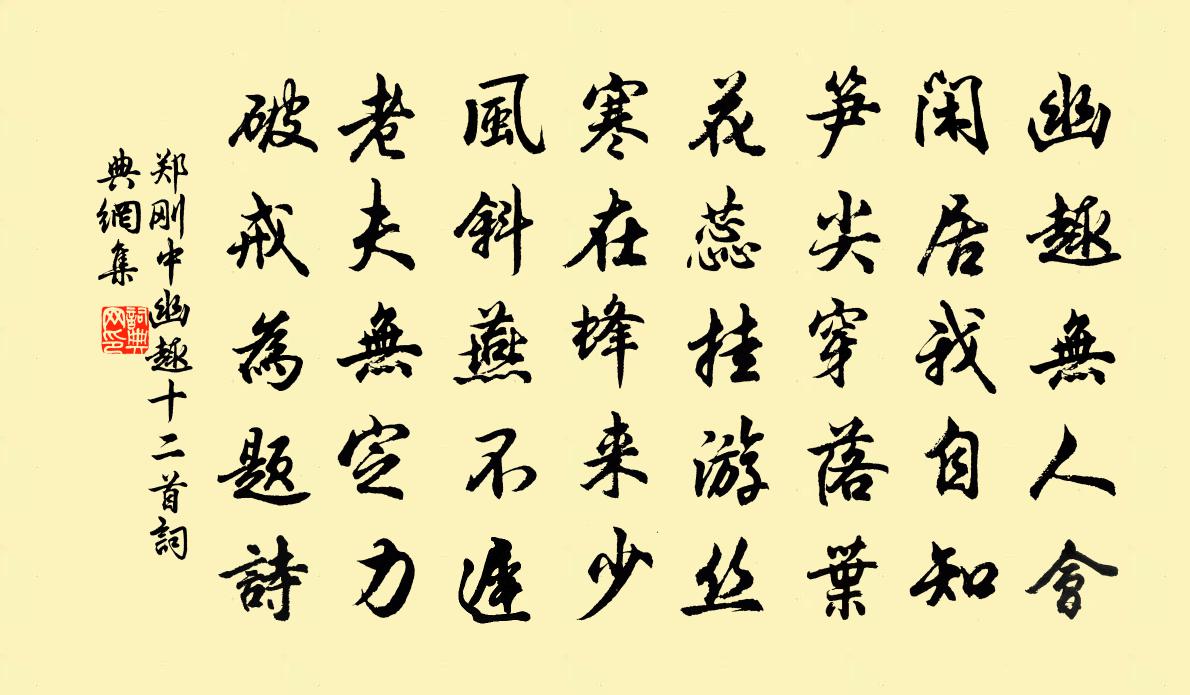 幽趣無人會
閑居我自知
笋尖穿落葉
花蕊挂游丝
寒在蜂来少
風斜燕不遲
老夫無定力
破戒為题詩
郑刚中幽趣十二首詞
典網集
詞典
网印